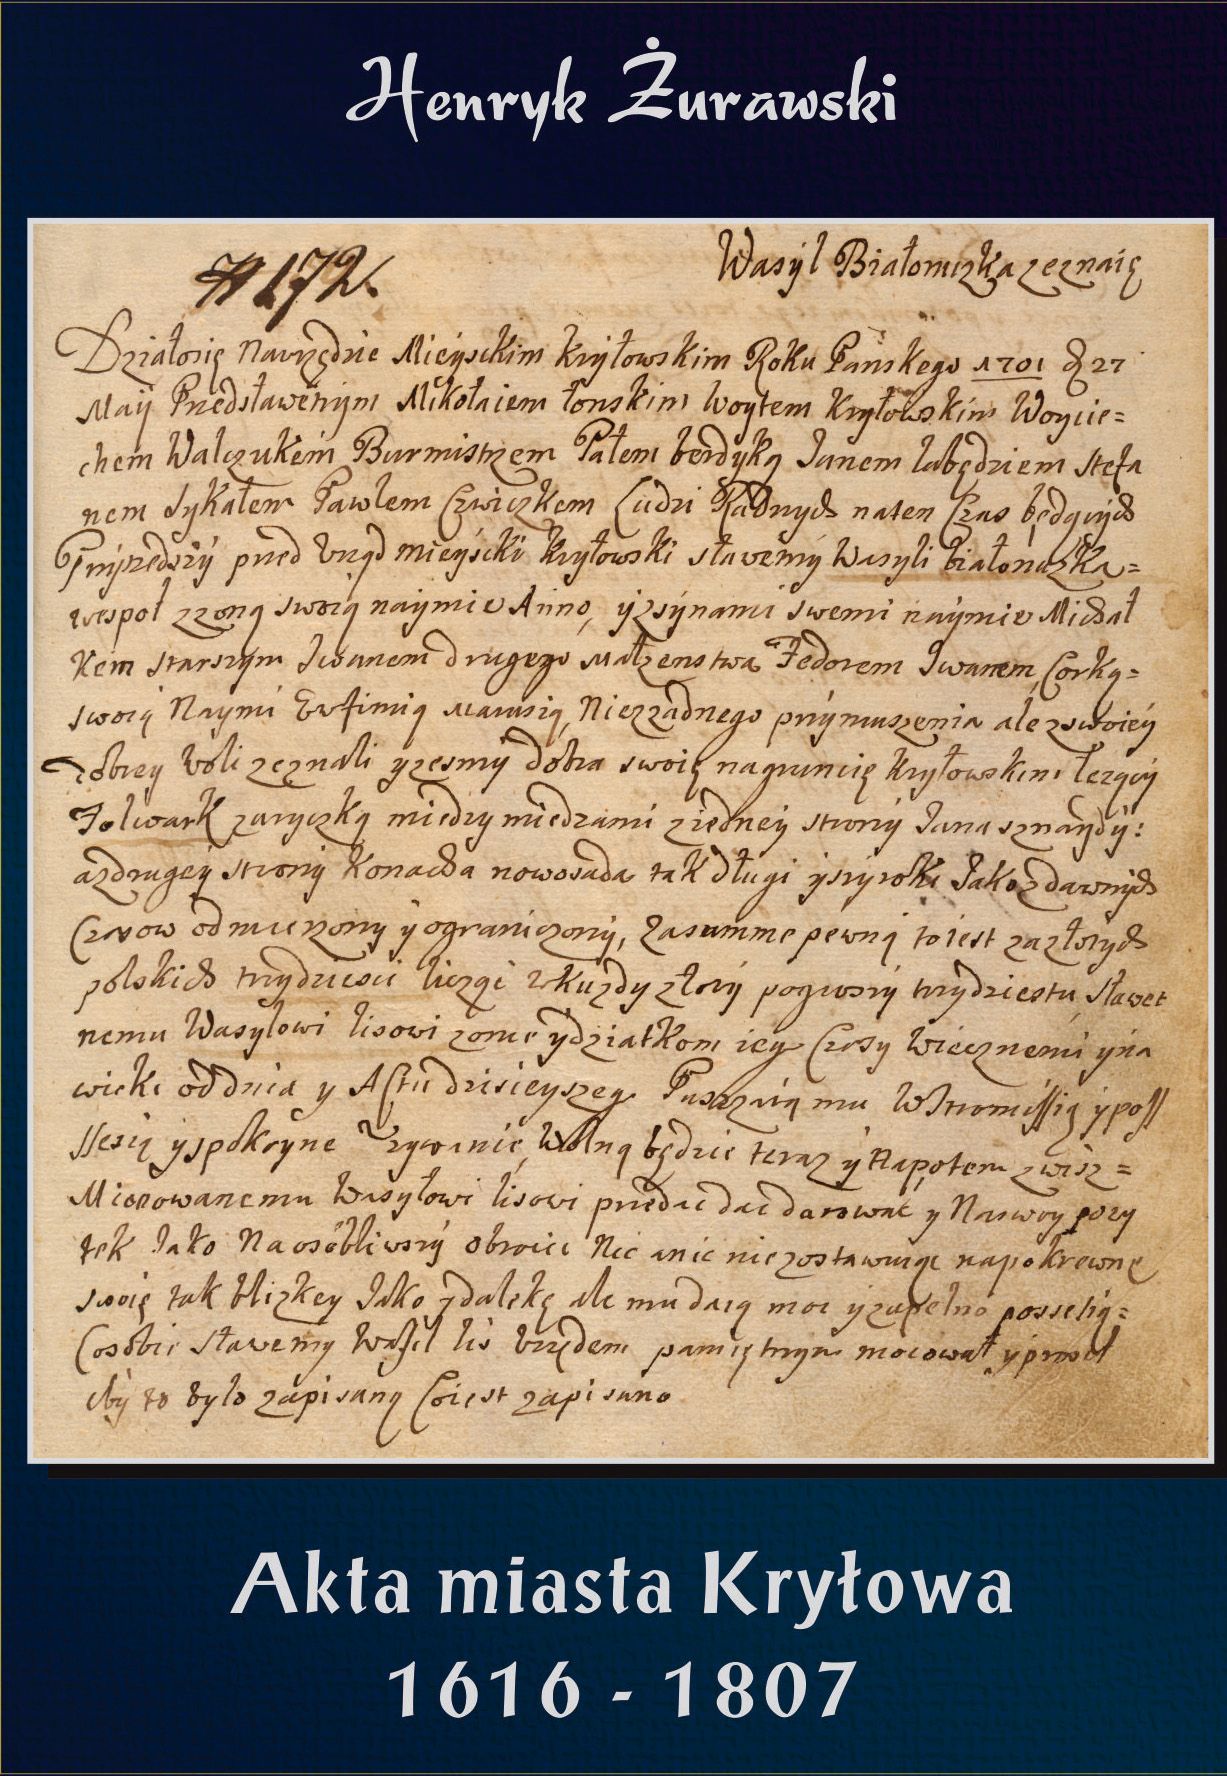 Henryk Żurawski
172.
Wasyl Białonuszka zeznaię
Działosię Naurzędzie Mieyskim Kryłowskim Roku Panskego 1701 D 27
Maÿ Przedsławetnym Mikołaiem łonskim woytem Kryłowskim Woycie=
chem Walczukem Burmistrzem Pałem berdyką Janem łabędziem Stefa
nem Sykałem Pawlem Czwiczkem Ludzi Radnych naten Czas będących
Przyszedszy przed Urząd mieyscki Kryłowski sławetny Wasyli białonuszka=
wespoł zzoną swoią naymie Anno, yzsynami swemi naymie Michał
kem starszym Iwanem drugego Małzenstwa Fedorem Iwanem Corką=
swoią Naymi Eufimią Marusią Niezzadnego przymuszenia ale zswoiey
dobrey woli zeznali yzesmy dobra swoię nagruncię Kryłowskim lezący
Folwark zaryczką miedzy miedzami ziedney strony Jana sznaydy:
azdrugey strony Konacha nowosada tak długi yszyroki Jako zdawnych
Czasow odmierzony y ograniczony, Zasumme pewną toiest zazłotych
polskich trzydziesci liczqc wkuzdy złoty pogroszy trzydziestu Sławet
nemu Wasylowi lisowi zonie ydziatkom iey Czasy wiecznemi yna
wieki oddnia y Actu dzisieyszeg Puszczaią mu WJntromissią yposs
ssesią yspokoyne Uzywanie, Wolną będzie teraz y Napotem zwisz=
Mianowanemu Wasyłowi lisowi przedac dac darować y Naswoy pozy
tek Jako Naosobliwszy obrocic Nic anic niezostawuiąc napokrewnę
swoię tak blizkey Jako ydalekę ale mu daią moc yzupełno possesią=
Cosobie sławetny Wasil lis Urzędem pamiętnym mocował yprosił
aby to było zapisang Coiest zapisano
Akta miasta Kryłowa
1616 - 1807